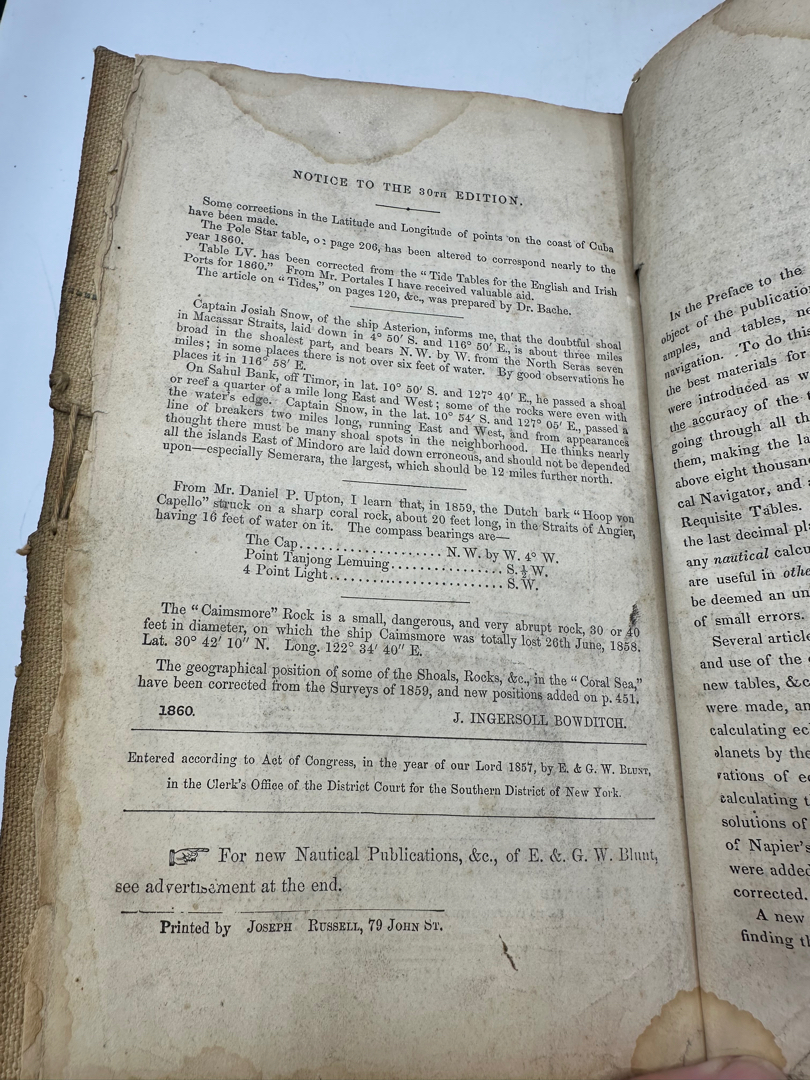 NOTICE TO THE 30TH EDITION.
Some corrections in the Latitude and Longitude of points on the coast of Cuba
have been made.
The Pole Star table, on page 206, has been altered to correspond nearly to the
year 1860.
Table LV. has been corrected from the "Tide Tables for the English and Irish
Ports for 1860." From Mr. Portales I have received valuable aid.
The article on "Tides," on pages 120, &c., was prepared by Dr. Bache.
Captain Josiah Snow, of the ship Asterion, informs me, that the doubtful shoal
in Macassar Straits, laid down in 4° 50′ S. and 116° 50′ E., is about three miles
broad in the shoalest part, and bears N. W. by W. from the North Seras seven
miles; in some places there is not over six feet of water. By good observations he
places it in 116° 58′ E.
On Sahul Bank, off Timor, in lat. 10° 50′ S. and 127° 40′ E., he passed a shoal
or reef a quarter of a mile long East and West; some of the rocks were even with
the water's edge. Captain Snow, in the lat. 10° 54′ S. and 127° 05′ E., passed a
line of breakers two miles long, running East and West, and from appearances
thought there must be many shoal spots in the neighborhood. He thinks nearly
all the islands East of Mindoro are laid down erroneous, and should not be depended
upon—especially Semerara, the largest, which should be 12 miles further north.
From Mr. Daniel P. Upton, I learn that, in 1859, the Dutch bark "Hoop von
Capello" struck on a sharp coral rock, about 20 feet long, in the Straits of Angier,
having 16 feet of water on it. The compass bearings are—
The Cap.................... N. W. by W. 4° W.
Point Tanjong Lemuing............... S. ½ W.
4 Point Light......................... S. W.
The "Caimsmore" Rock is a small, dangerous, and very abrupt rock, 30 or 40
feet in diameter, on which the ship Caimsmore was totally lost 26th June, 1858.
Lat. 30° 42′ 10″ N. Long. 122° 34′ 40″ E.
The geographical position of some of the Shoals, Rocks, &c., in the "Coral Sea,"
have been corrected from the Surveys of 1859, and new positions added on p. 451.
1860. J. INGERSOLL BOWDITCH.
Entered according to Act of Congress, in the year of our Lord 1857, by E. & G. W. BLUNT,
in the Clerk's Office of the District Court for the Southern District of New York.
☞ For new Nautical Publications, &c., of E. & G. W. Blunt,
see advertisement at the end.
Printed by JOSEPH RUSSELL, 79 JOHN ST.
IN the Preface to the
object of the publication
amples, and tables, ne
navigation. To do this
the best materials for
were introduced as w
the accuracy of the t
going through all th
them, making the la
above eight thousand
cal Navigator, and a
Requisite Tables.
the last decimal pl
any nautical calcu
are useful in othe
be deemed an un
of small errors.
Several article
and use of the
new tables, &c
were made, an
calculating ec
planets by the
rations of ec
calculating t
solutions of
of Napier's
were added
corrected.
A new
finding th